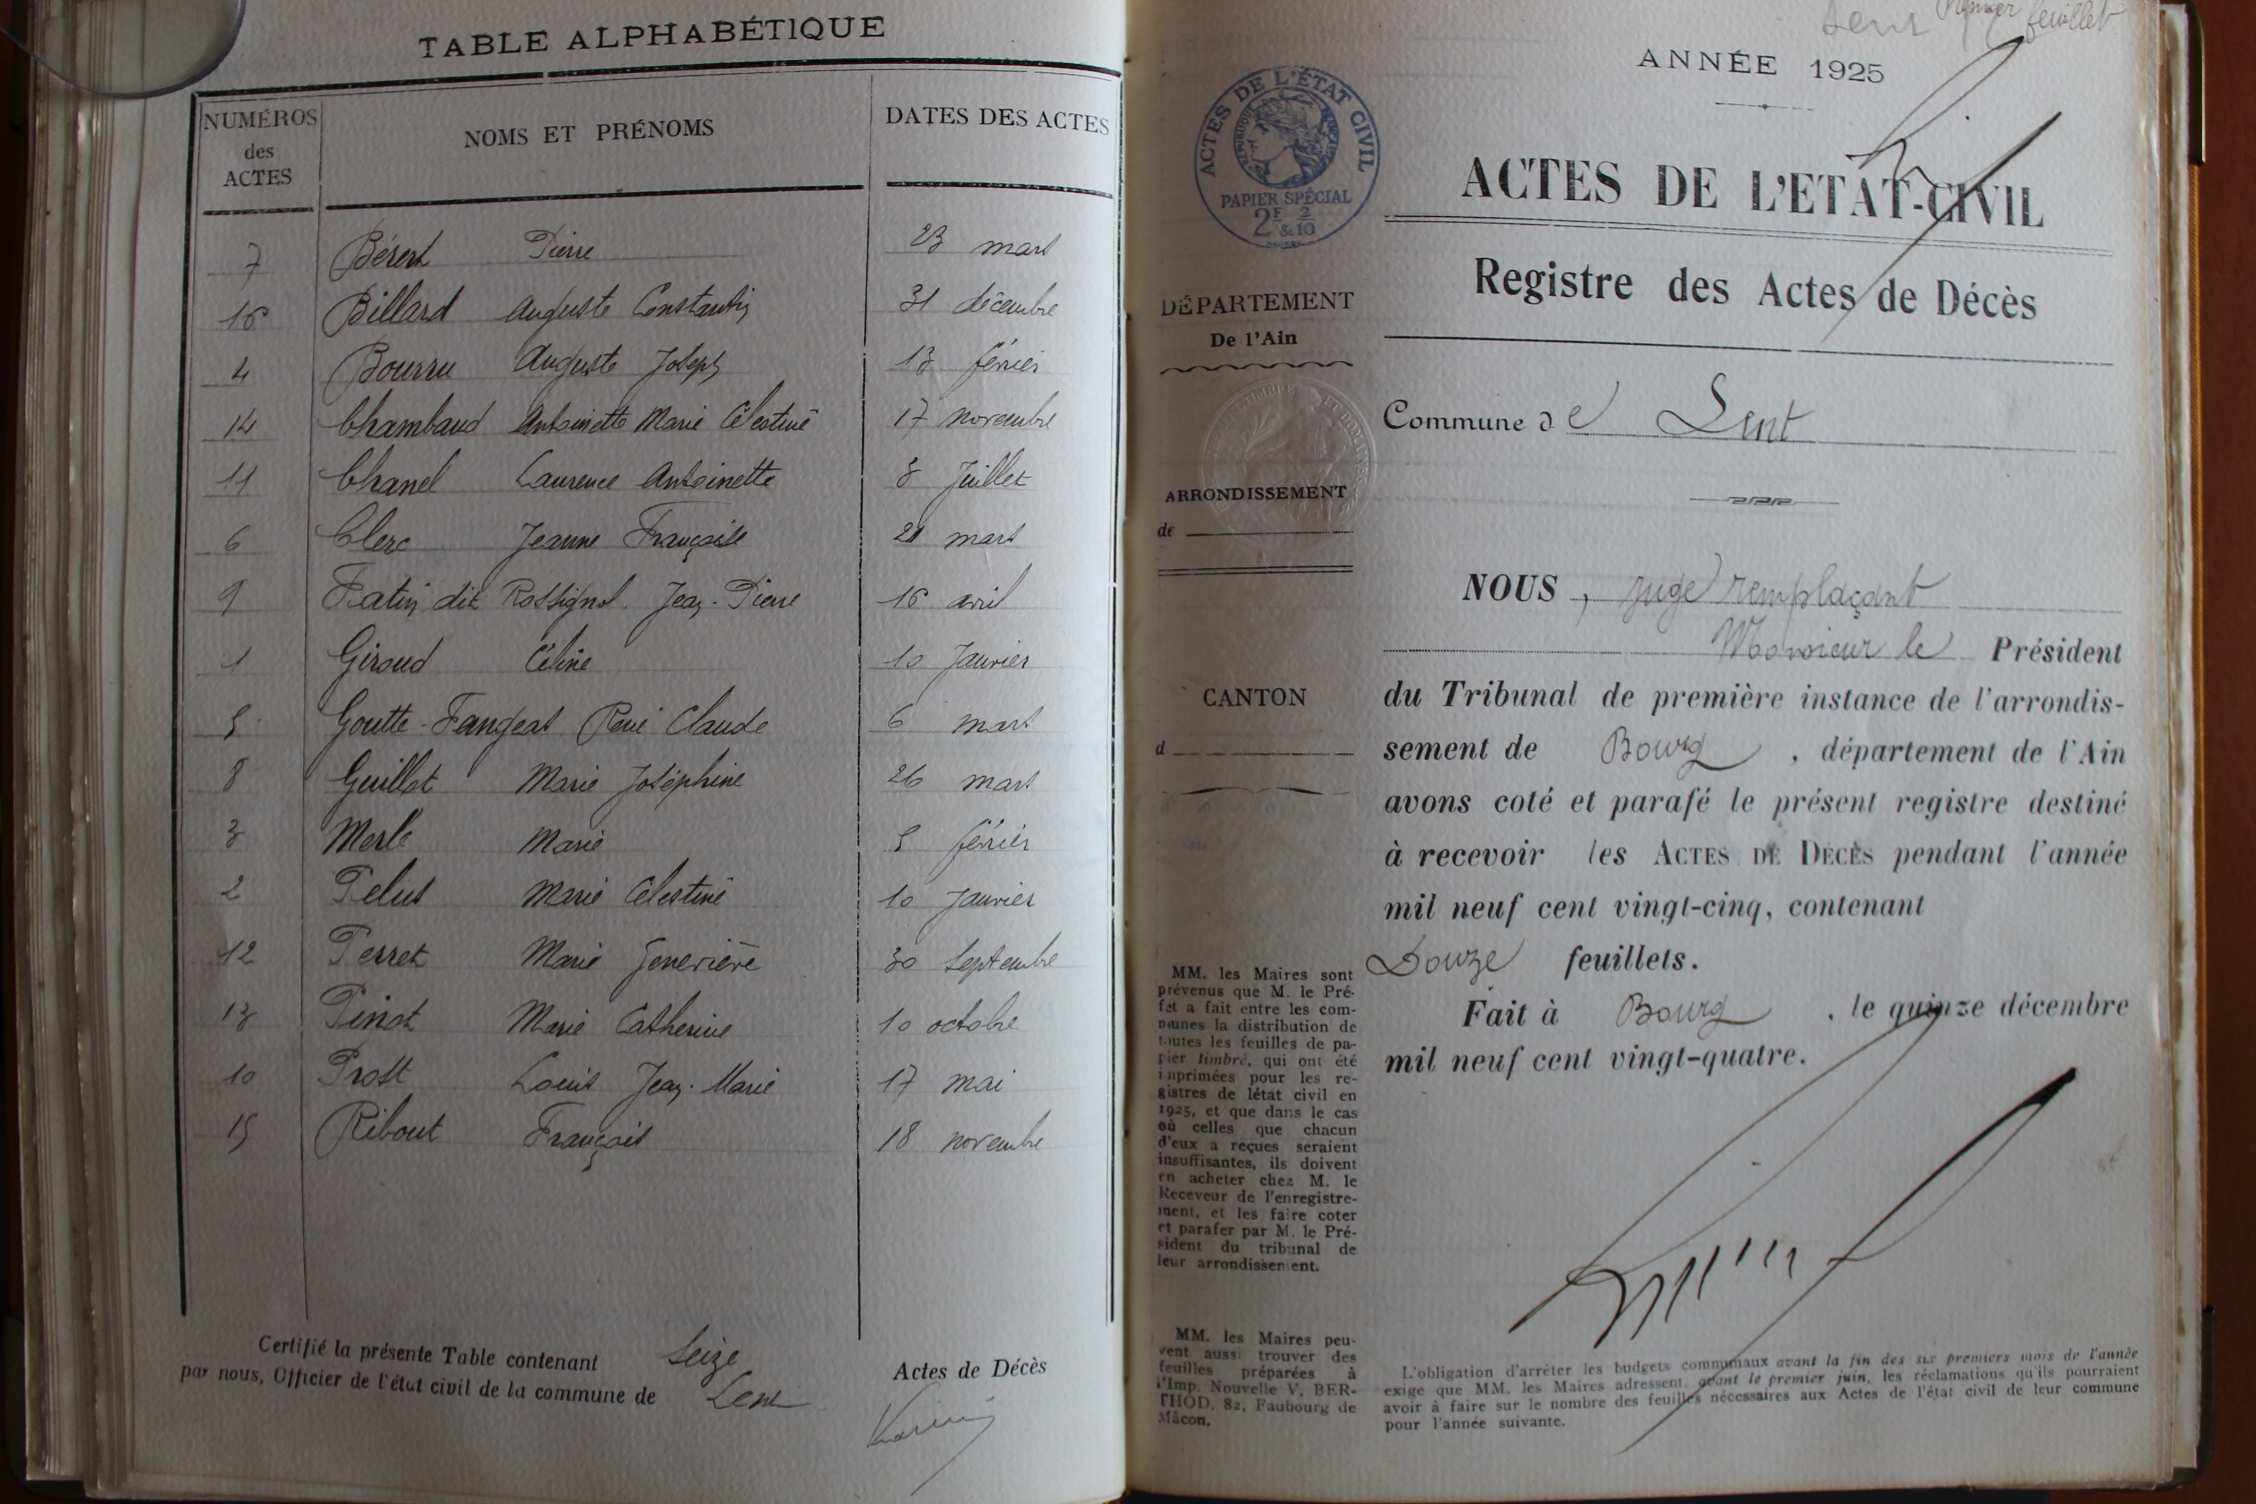 TABLE ALPHABÉTIQUE
NUMÉROS des ACTES NOMS ET PRÉNOMS DATES DES ACTES
7 Bérert Pierre 23 mars
16 Billard Auguste Constantin 31 décembre
4 Bourru Auguste Joseph 13 février
14 Chambaud Antoinette Marie Célestine 17 novembre
11 Chanel Laurence Antoinette 8 Juillet
6 Clerc Jeanne Françoise 21 mars
9 Fatin dit Rossignol Jean-Pierre 16 avril
1 Giroud Céline 10 Janvier
5 Goutte-Fangeas René Claude 6 mars
8 Guillot Marie Joséphine 26 mars
3 Merle Marie 5 février
2 Pelus Marie Célestine 10 Janvier
12 Perret Marie Geneviève 30 Septembre
13 Pinot Marie Catherine 10 octobre
10 Prost Louis Jean-Marie 17 mai
15 Ribout François 18 novembre
Certifié la présente Table contenant Seize Actes de Décès
par nous, Officier de l'état civil de la commune de Lent
Lent Premier feuillet
ANNÉE 1925
ACTES DE L'ÉTAT CIVIL
RÉPUBLIQUE FRANÇAISE
PAPIER SPÉCIAL
2F & 2/10
ACTES DE L'ETAT-CIVIL
Registre des Actes de Décès
DÉPARTEMENT
De l'Ain
Commune de Lent
ARRONDISSEMENT
de
CANTON
d
NOUS, juge remplaçant
Monsieur le Président
du Tribunal de première instance de l'arrondis-
sement de Bourg, département de l'Ain
avons coté et parafé le présent registre destiné
à recevoir les ACTES DE DÉCÈS pendant l'année
mil neuf cent vingt-cinq, contenant
Douze feuillets.
Fait à Bourg, le quinze décembre
mil neuf cent vingt-quatre.
MM. les Maires sont
prévenus que M. le Pré-
fet a fait entre les com-
munes la distribution de
toutes les feuilles de pa-
pier timbré, qui ont été
imprimées pour les re-
gistres de létat civil en
1925, et que dans le cas
où celles que chacun
d'eux a reçues seraient
insuffisantes, ils doivent
en acheter chez M. le
Receveur de l'enregistre-
ment, et les faire coter
et parafer par M. le Pré-
sident du tribunal de
leur arrondissement.
MM. les Maires peu-
vent aussi trouver des
feuilles préparées à
l'Imp. Nouvelle V. BER-
THOD, 82, Faubourg de
Mâcon.
L'obligation d'arrêter les budgets communaux avant la fin des six premiers mois de l'année
exige que MM. les Maires adressent, avant le premier juin, les réclamations qu'ils pourraient
avoir à faire sur le nombre des feuilles nécessaires aux Actes de l'état civil de leur commune
pour l'année suivante.